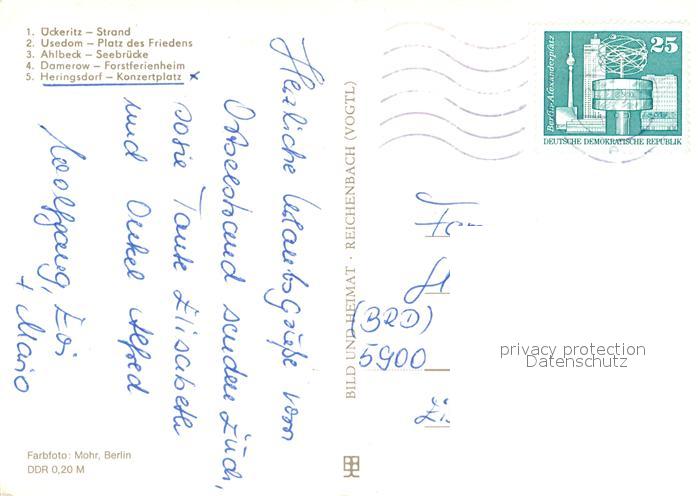 1. Ückeritz – Strand
2. Usedom – Platz des Friedens
3. Ahlbeck – Seebrücke
4. Damerow – Forstferienheim
5. Heringsdorf – Konzertplatz x
Herzliche Urlaubsgrüße vom
Ostseestrand senden Euch,
sowie Tante Elisabeth
und Onkel Alfred
Wolfgang, Evi
+ Mario
Farbfoto: Mohr, Berlin
DDR 0,20 M
BILD UND HEIMAT · REICHENBACH (VOGTL)
Berlin-Alexanderplatz
25
DEUTSCHE DEMOKRATISCHE REPUBLIK
(BRD)
5900
privacy protection
Datenschutz